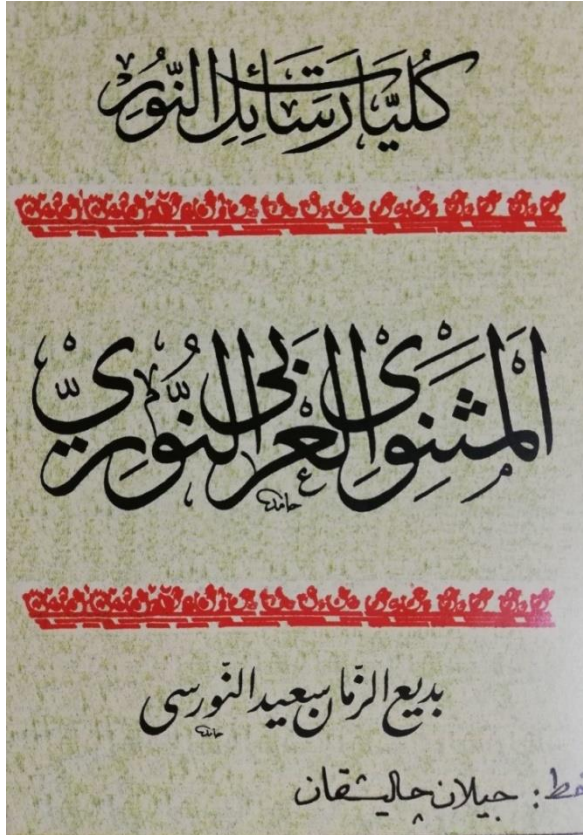 كُلّيَات رَسَائِلِ النُّورِ
اَلْمَثْنَوِي الْعَرَبِي النُّورِيّ
حامد
بديع الزّمان سعيد النّورسى
حامد
خط: جيلان چاليشقان